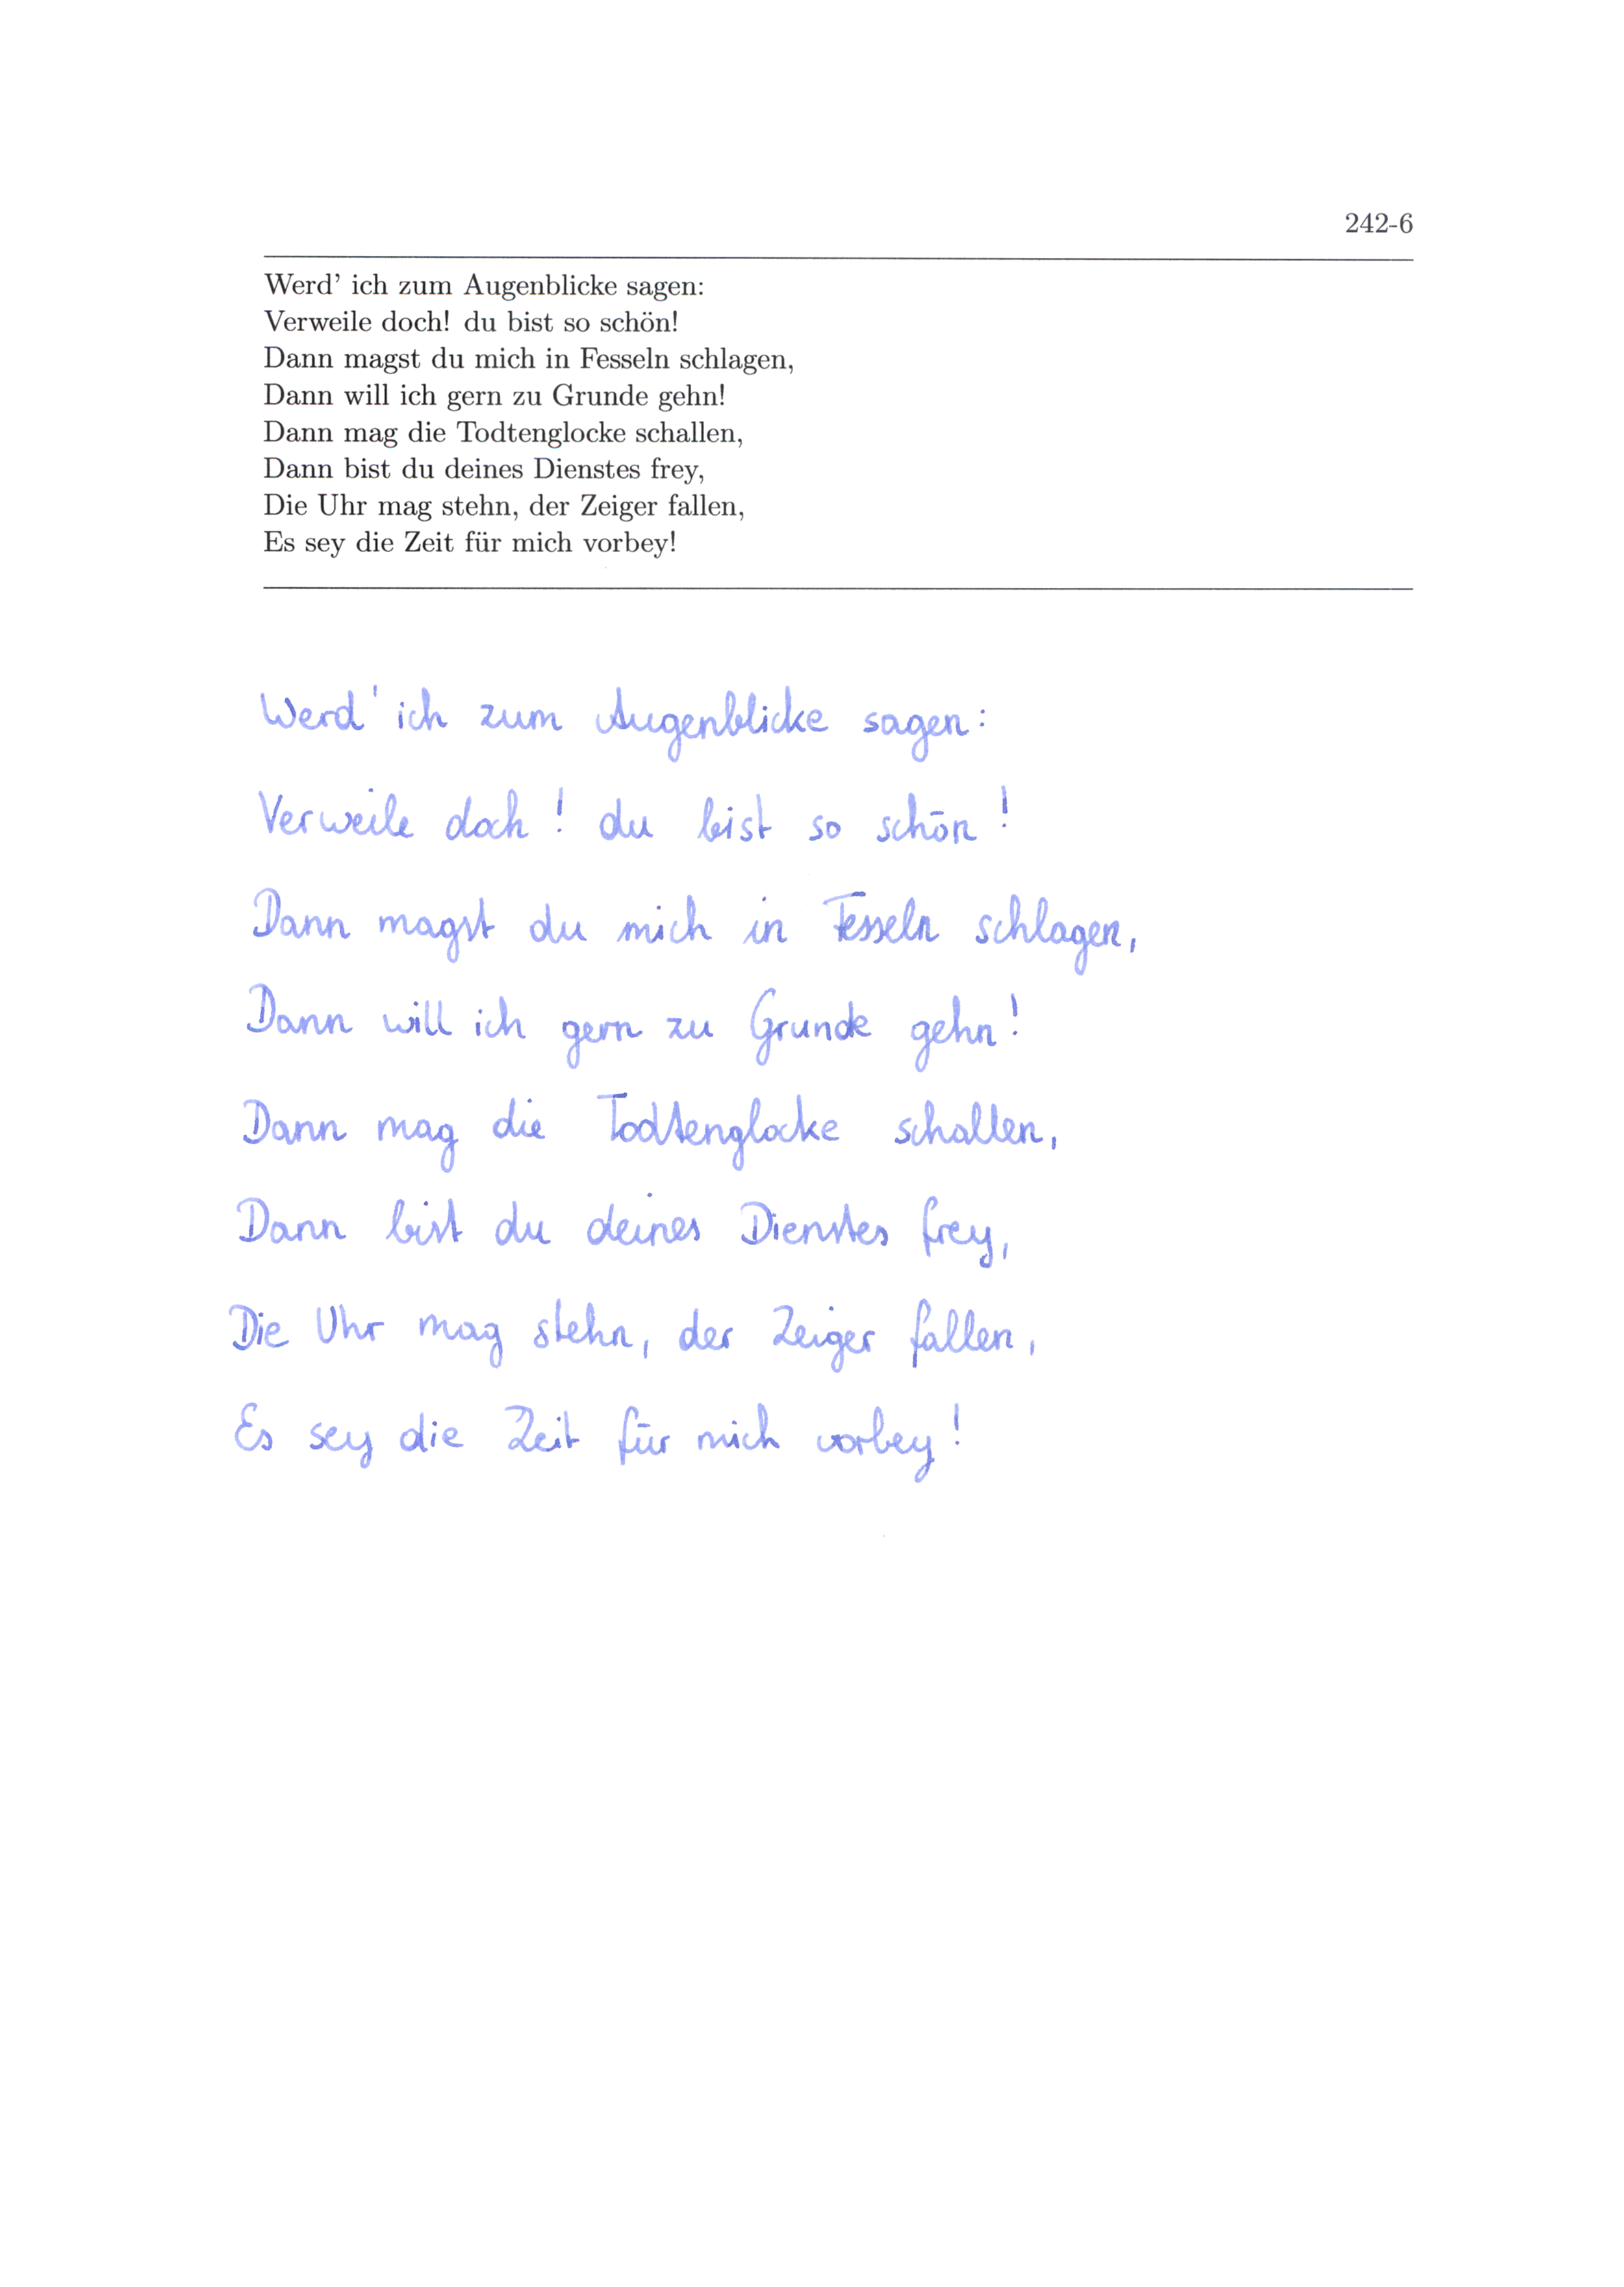 242-6
Werd' ich zum Augenblicke sagen:
Verweile doch! du bist so schön!
Dann magst du mich in Fesseln schlagen,
Dann will ich gern zu Grunde gehn!
Dann mag die Todtenglocke schallen,
Dann bist du deines Dienstes frey,
Die Uhr mag stehn, der Zeiger fallen,
Es sey die Zeit für mich vorbey!
Werd' ich zum Augenblicke sagen:
Verweile doch! du bist so schön!
Dann magst du mich in Fesseln schlagen,
Dann will ich gern zu Grunde gehn!
Dann mag die Todtenglocke schallen,
Dann bist du deines Dienstes frey,
Die Uhr mag stehn, der Zeiger fallen,
Es sey die Zeit für mich vorbey!